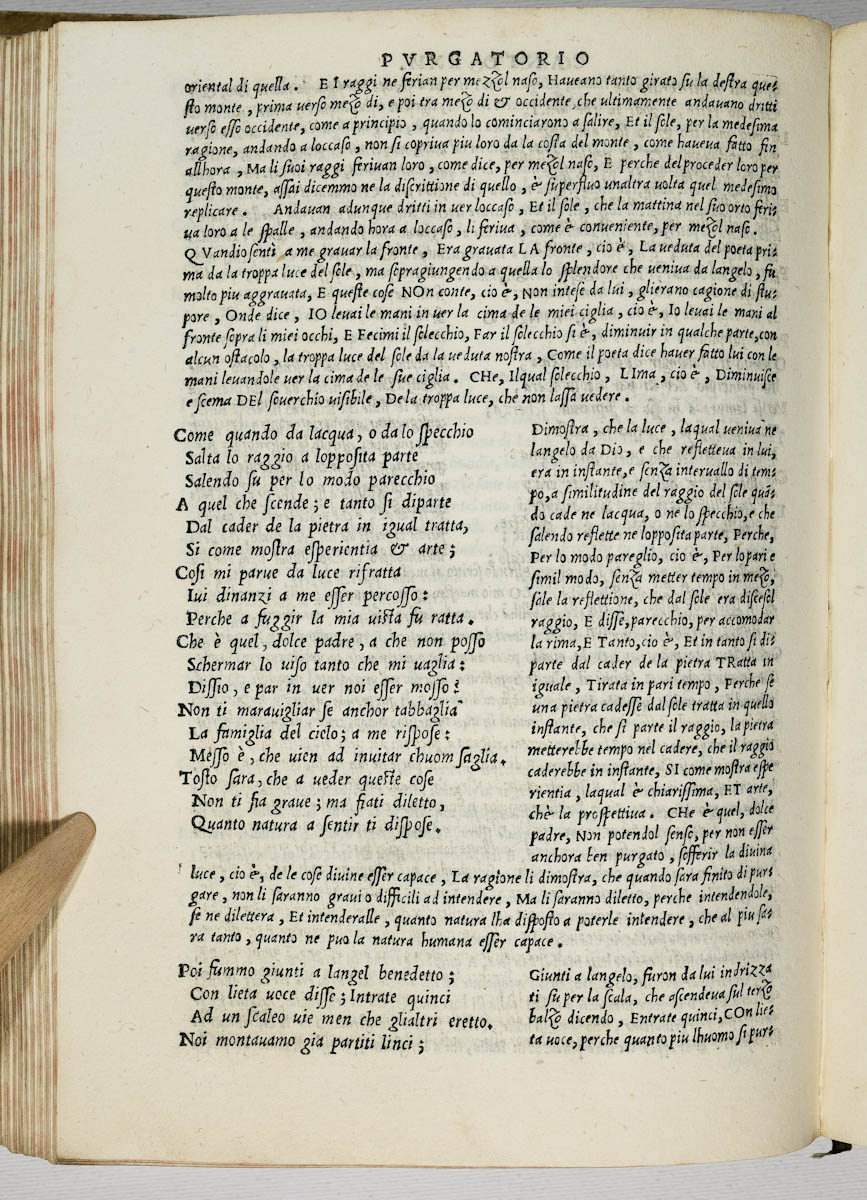 PVRGATORIO
oriental di quella. E I raggi ne ferian per mezzol naso, Haueano tanto girato su la destra que-
sto monte, prima uerso mezo di, e poi tra mezo di & occidente, che ultimamente andauano dritti
uerso esso occidente, come a principio, quando lo cominciarono a salire, Et il sole, per la medesima
ragione, andando a loccaso, non si copriua piu loro da la costa del monte, come haueua fatto fin
allhora, Ma li suoi raggi feriuan loro, come dice, per mezol naso, E perche del proceder loro per
questo monte, assai dicemmo ne la discrittione di quello, è superfluo unaltra uolta quel medesimo
replicare. Andauan adunque dritti in uer loccaso, Et il sole, che la mattina nel suo orto feri-
ua loro a le spalle, andando hora a loccaso, li feriua, come è conueniente, per mezol naso.
QVandio sentì a me grauar la fronte, Era grauata LA fronte, cio è, La ueduta del poeta pri-
ma da la troppa luce del sole, ma sopragiungendo a quella lo splendore che ueniua da langelo, fu
molto piu aggrauata, E queste cose NOn conte, cio è, Non intese da lui, glierano cagione di stu-
pore, Onde dice, IO leuai le mani in uer la cima de le miei ciglia, cio è, Io leuai le mani al
fronte sopra li miei occhi, E Fecimi il solecchio, Far il solecchio si è, diminuir in qualche parte, con
alcun ostacolo, la troppa luce del sole da la ueduta nostra, Come il poeta dice hauer fatto lui con le
mani leuandole uer la cima de le sue ciglia. CHe, Ilqual solecchio, LIma, cio è, Diminuisce
e scema DEl souerchio uisibile, De la troppa luce, che non lassa uedere.
Come quando da lacqua, o da lo specchio
Salta lo raggio a lopposita parte
Salendo su per lo modo parecchio
A quel che scende; e tanto si diparte
Dal cader de la pietra in igual tratta,
Si come mostra esperientia & arte;
Cosi mi parue da luce rifratta
Iui dinanzi a me esser percosso:
Perche a fuggir la mia uista fu ratta.
Che è quel, dolce padre, a che non posso
Schermar lo uiso tanto che mi uaglia:
Dissio, e par in uer noi esser mosso?
Non ti marauigliar se anchor tabbaglia
La famiglia del cielo; a me rispose:
Messo è, che uien ad inuitar chuom saglia.
Tosto sara, che a ueder queste cose
Non ti fia graue; ma fiati diletto,
Quanto natura a sentir ti dispose.
Dimostra, che la luce, laqual ueniua ne
langelo da Dio, e che refletteua in lui,
era in instante, e senza interuallo di tem-
po, a similitudine del raggio del sole quã-
do cade ne lacqua, o ne lo specchio, e che
salendo reflette ne lopposita parte, Perche,
Per lo modo pareglio, cio è, Per lo pari e
simil modo, senza metter tempo in mezo,
sale la reflettione, che dal sole era discesol
raggio, E disse, parecchio, per accomodar
la rima, E Tanto, cio è, Et in tanto si di-
parte dal cader de la pietra TRatta in
iguale, Tirata in pari tempo, Perche se
una pietra cadesse dal sole tratta in quello
instante, che si parte il raggio, la pietra
metterebbe tempo nel cadere, che il raggio
caderebbe in instante, SI come mostra espe
rientia, laqual è chiarissima, ET arte,
chè la prospettiua. CHe è quel, dolce
padre, Non potendol sense, per non esser
anchora ben purgato, sofferir la diuina
luce, cio è, de le cose diuine esser capace, La ragione li dimostra, che quando sara finito di pur-
gare, non li saranno graui o difficili ad intendere, Ma li saranno diletto, perche intendendole,
se ne dilettera, Et intenderalle, quanto natura lha disposto a poterle intendere, che al piu sa-
ra tanto, quanto ne puo la natura humana esser capace.
Poi fummo giunti a langel benedetto;
Con lieta uoce disse; Intrate quinci
Ad un scaleo uie men che glialtri eretto.
Noi montauamo gia partiti linci;
Giunti a langelo, furon da lui indrizza
ti su per la scala, che ascendeua sul terzo
balzo dicendo, Entrate quinci, COn lie-
ta uoce, perche quanto piu lhuomo si pur-